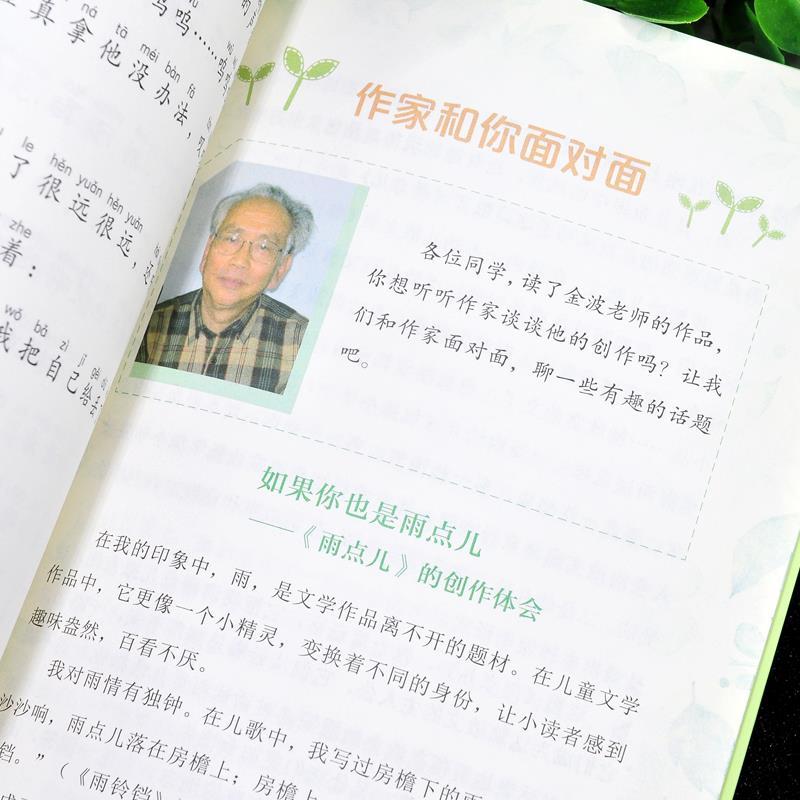 呜呜……呜
ná tā méi bàn fǎ
真拿他没办法，
le hěn yuǎn hěn yuǎn
了很远很远，还
zhe
着：
wǒ bǎ zì jǐ
我把自己给丢
作家和你面对面
各位同学，读了金波老师的作品，
你想听听作家谈谈他的创作吗？让我
们和作家面对面，聊一些有趣的话题
吧。
如果你也是雨点儿
——《雨点儿》的创作体会
在我的印象中，雨，是文学作品离不开的题材。在儿童文学
作品中，它更像一个小精灵，变换着不同的身份，让小读者感到
趣味盎然，百看不厌。
我对雨情有独钟。在儿歌中，我写过房檐下的雨
沙沙响，雨点儿落在房檐上；房檐上
铛。”（《雨铃铛》